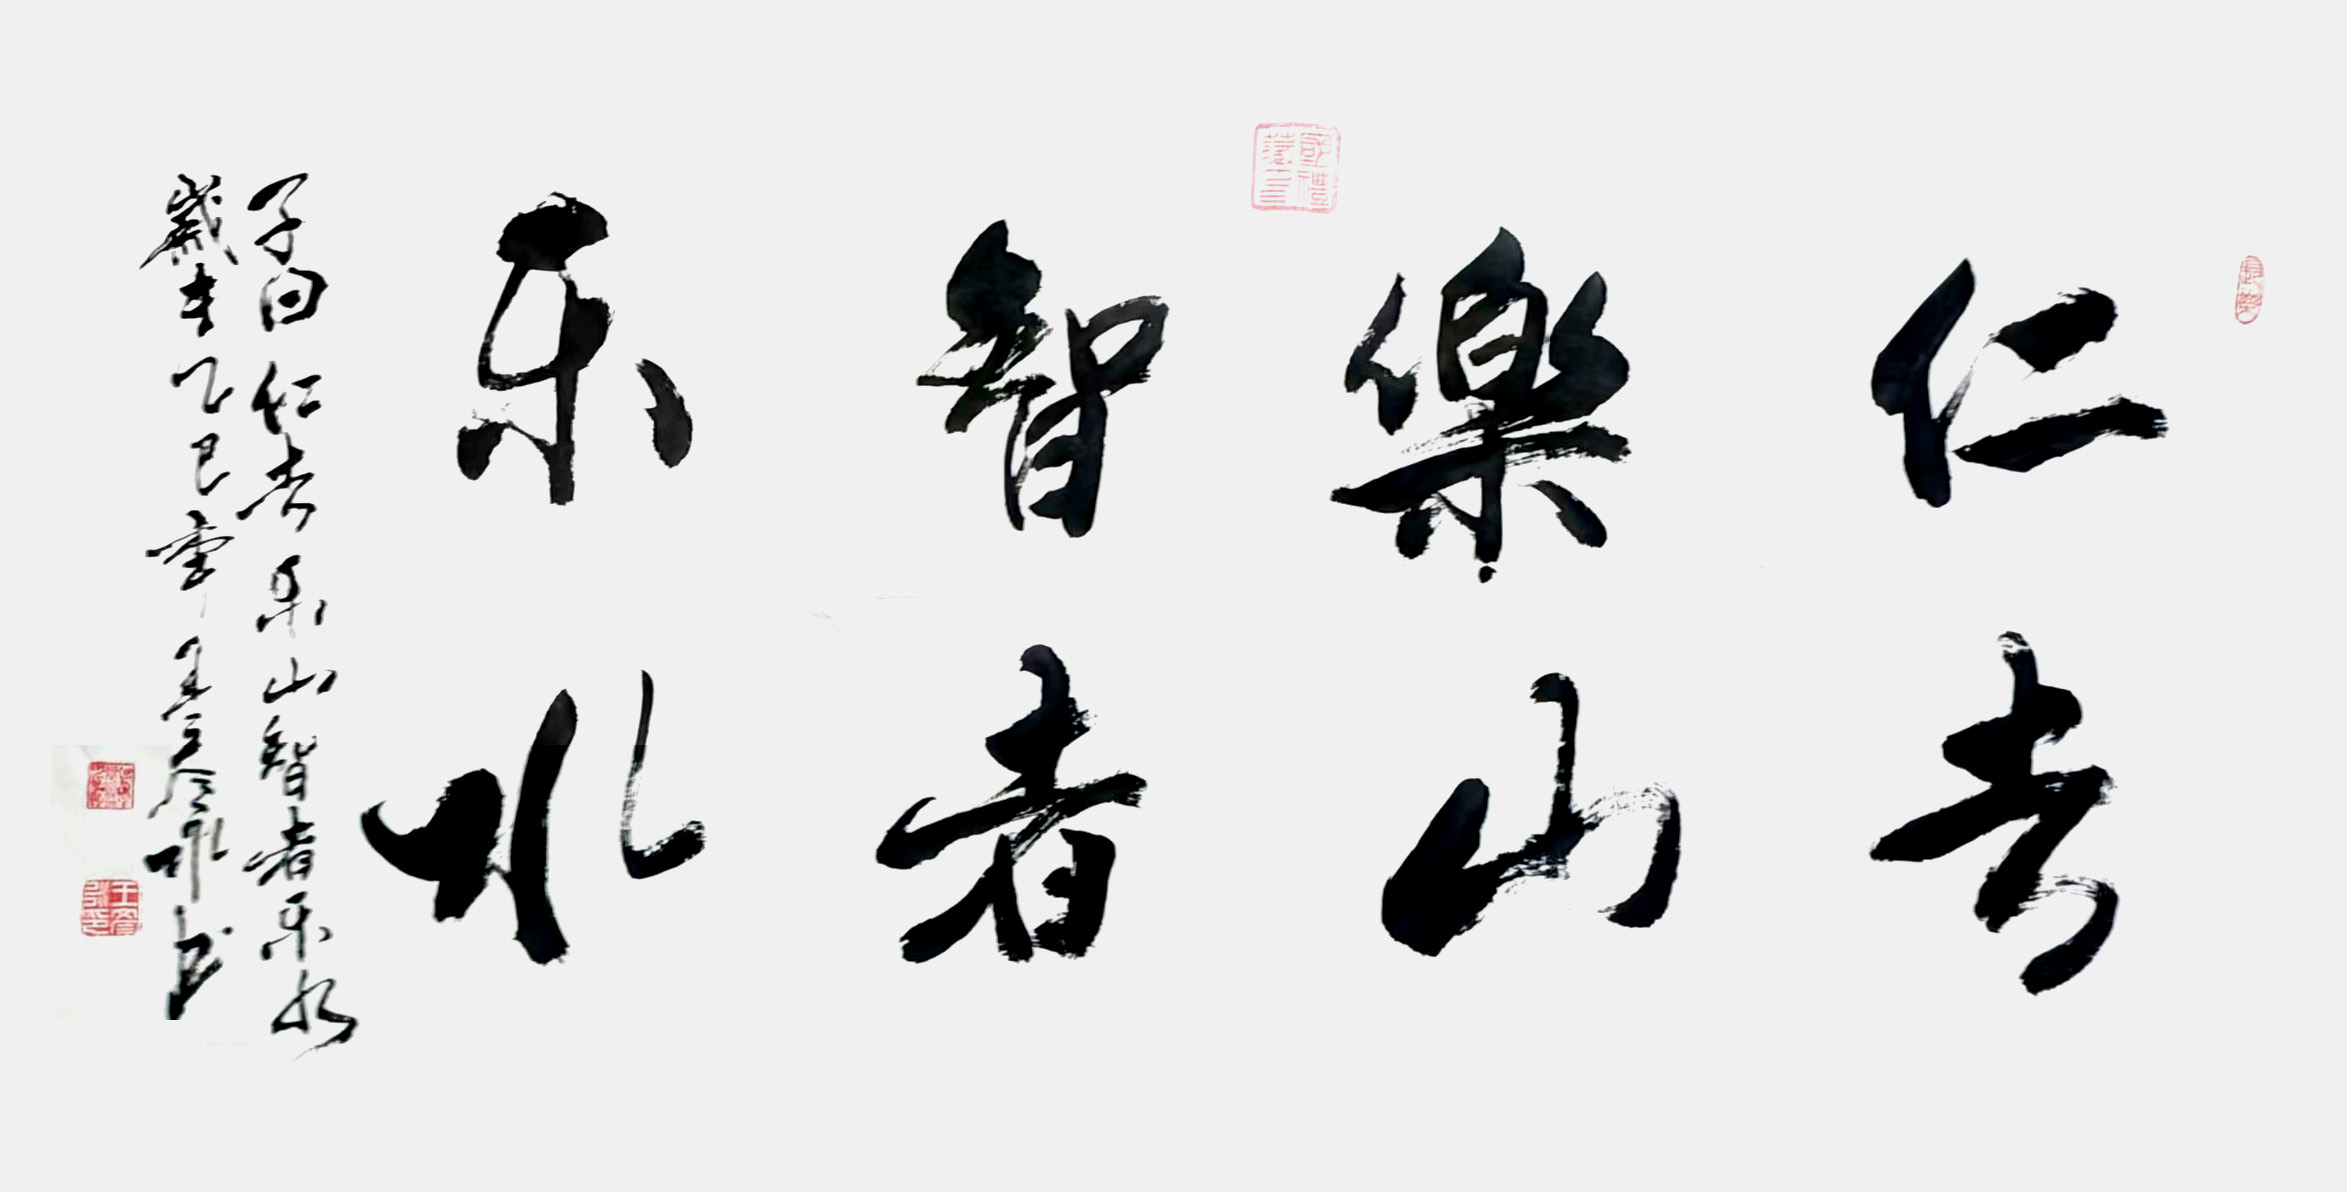 仁者
樂山
智者
乐水
子曰仁者乐山智者乐水
歲在乙巳年王彦